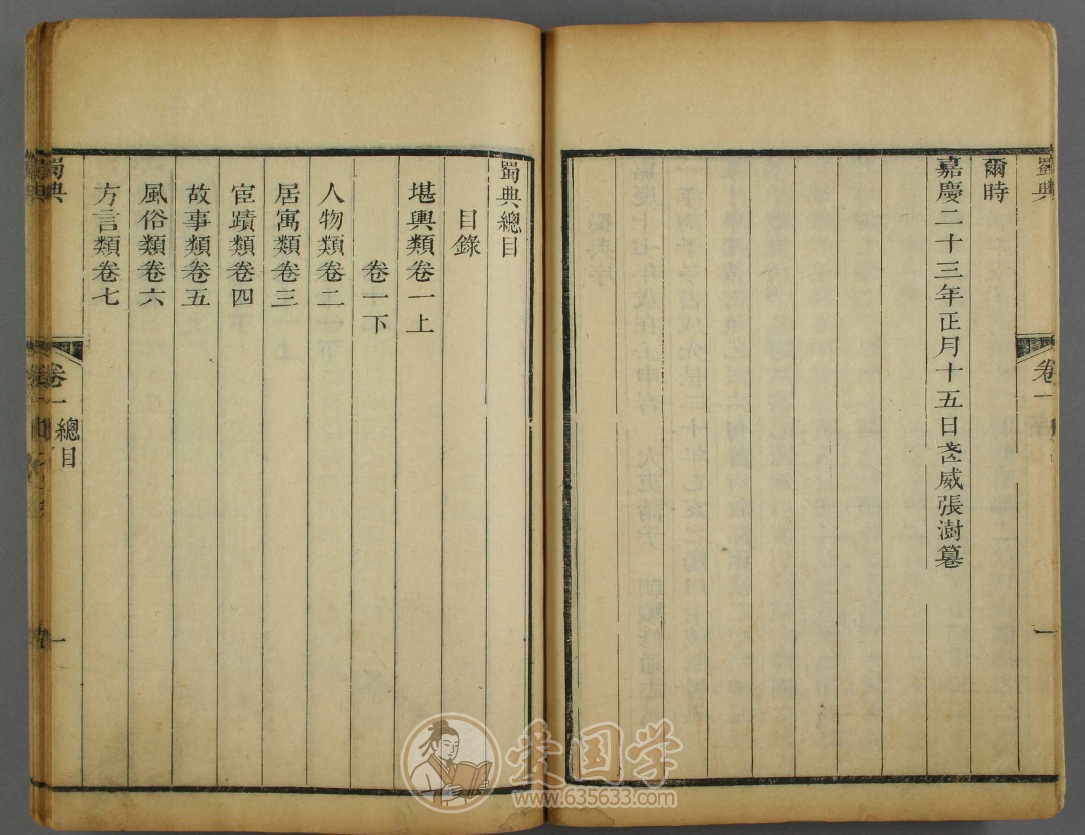 蜀典
卷一
一
爾時
嘉慶二十三年正月十五日
威張澍篹
蜀典總目
目錄
堪輿類卷一上
卷一下
人物類卷二
居寓類卷三
宦蹟類卷四
故事類卷五
風俗類卷六
方言類卷七
蜀典
卷一
總目
一
爱国学
www.635633.com